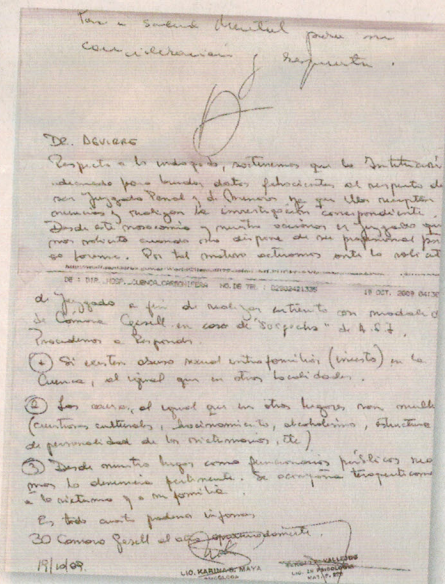 Pase a Salud Mental para su
consideración y respuesta.
DR. AGUIRRE
Respecto a lo indagado, sostenemos que la Institución
adecuada para brindar datos fehacientes al respecto de
ser Juzgado Penal y de Menores ya que ellos receptan
denuncias y realizan la investigación correspondiente.
Desde este nosocomio y en muchas ocasiones el juzgado que
nos solicita cuando no dispone de su profesional
forense. Por tal motivo actuamos ante la solicit
DE : DIR. HOSP. CUENCA CARBONIFERA NO. DE TEL : 02902421335 19 OCT. 2009
de Juzgado a fin de realizar entrevista con modalid
de Cámara Gesell en caso de "sospecha" de A.S.I.
Procedemos a responder.
1 Si existen abuso sexual intrafamiliar (incesto) en la
Cuenca, al igual que en otras localidades.
2 Las causas, al igual que en otros lugares son
(cuestiones culturales, hacinamiento, alcoholismo, estructura
de personalidad de los victimarios, etc)
3 Desde nuestro lugar como funcionarios públicos
mos la denuncia pertinente. Se acompaña
a la víctima y a su familia.
Es todo cuanto podemos informar
30 Cámara Gesell al año aproximadamente
19/10/09. LIC. KARINA B. MAYA
PSICOLOGA
VALLEJOS
LIC. EN PSICOLOGIA